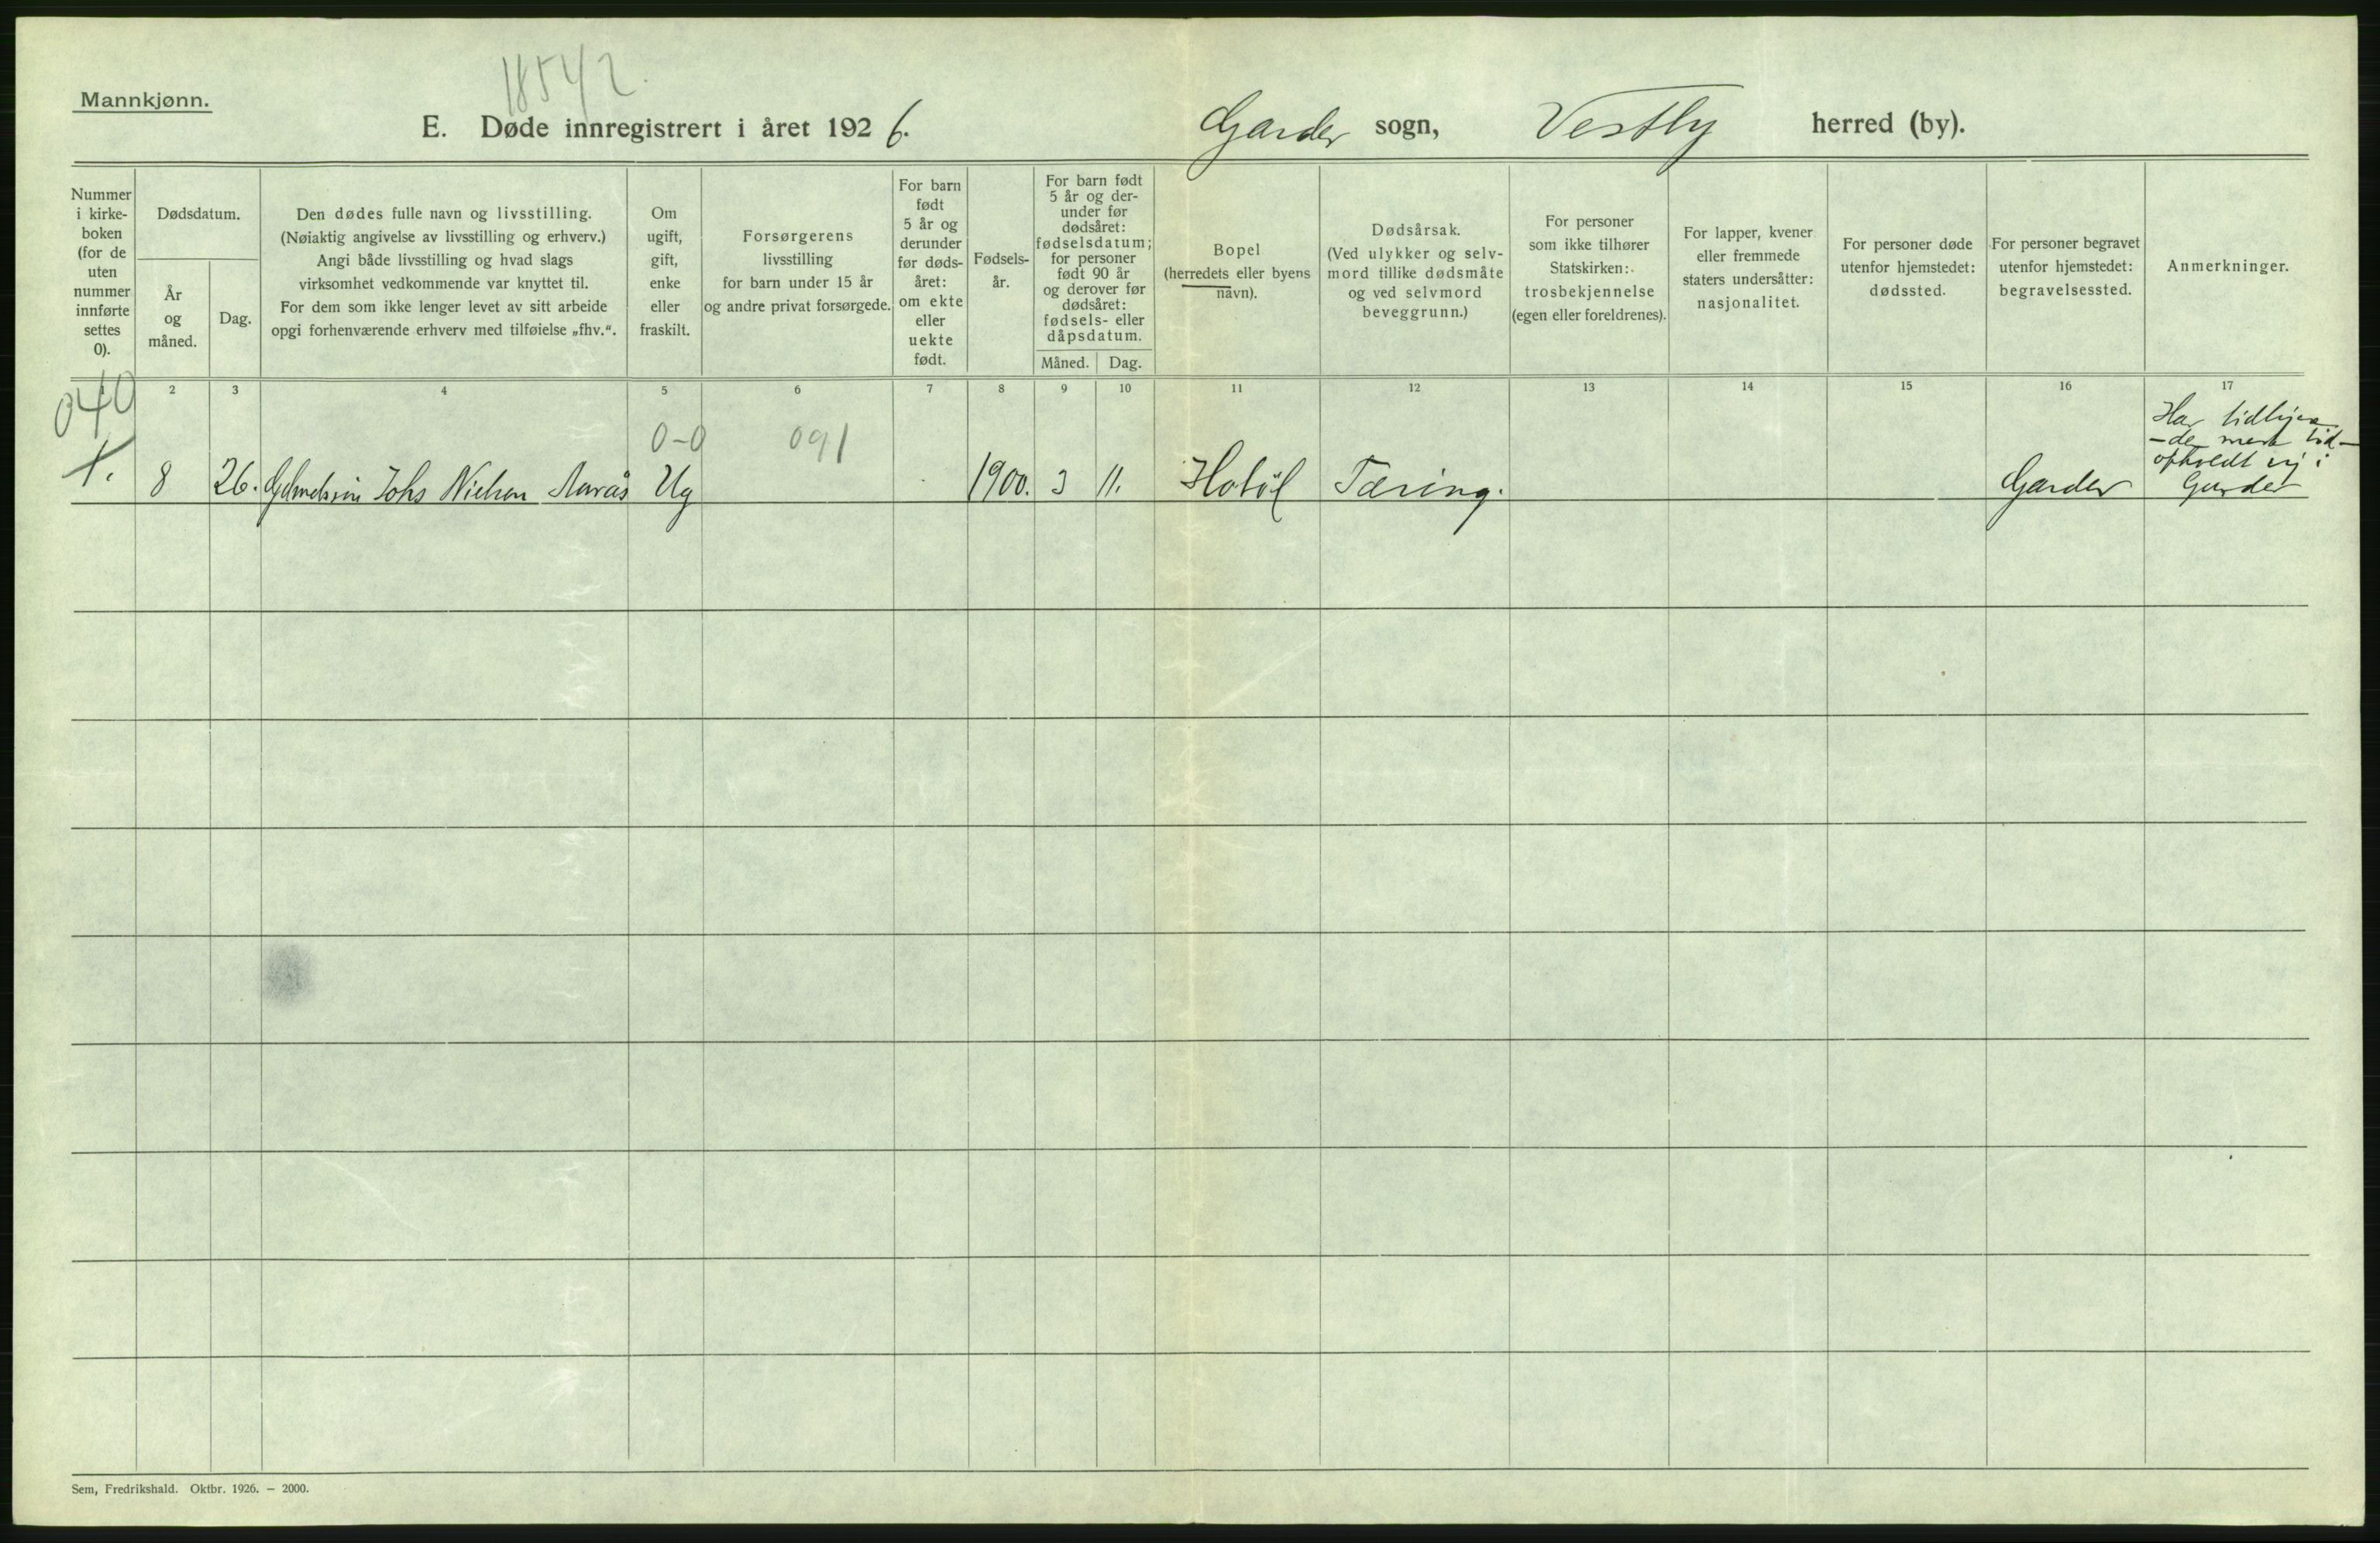 18542.
Mannkjønn.
E. Døde innregistrert i året 1926. Garder sogn, Vestby herred (by).
Nummer
i kirke-
boken
(for de
uten
nummer
innførte
settes
0).
Dødsdatum.
År
og
måned.
Dag.
Den dødes fulle navn og livsstilling.
(Nøiaktig angivelse av livsstilling og erhverv.)
Angi både livsstilling og hvad slags
virksomhet vedkommende var knyttet til.
For dem som ikke lenger levet av sitt arbeide
opgi forhenværende erhverv med tilføielse „fhv.“.
Om
ugift,
gift,
enke
eller
fraskilt.
Forsørgerens
livsstilling
for barn under 15 år
og andre privat forsørgede.
For barn
født
5 år og
derunder
før døds-
året:
om ekte
eller
uekte
født.
Fødsels-
år.
For barn født
5 år og der-
under før
dødsåret:
fødselsdatum;
for personer
født 90 år
og derover før
dødsåret:
fødsels- eller
dåpsdatum.
Måned. Dag.
Bopel
(herredets eller byens
navn).
Dødsårsak.
(Ved ulykker og selv-
mord tillike dødsmåte
og ved selvmord
beveggrunn.)
For personer
som ikke tilhører
Statskirken:
trosbekjennelse
(egen eller foreldrenes).
For lapper, kvener
eller fremmede
staters undersåtter:
nasjonalitet.
For personer døde
utenfor hjemstedet:
dødssted.
For personer begravet
utenfor hjemstedet:
begravelsessted.
Anmerkninger.
1 2 3 4 5 6 7 8 9 10 11 12 13 14 15 16 17
040
0-0 091
Har
opholdt sig i
1. 8 26. Johs Nielsen Aarås Ug 1900. 3 11. Hobøl Tæring. Garder Garder
Sem, Fredrikshald. Oktbr. 1926. — 2000.